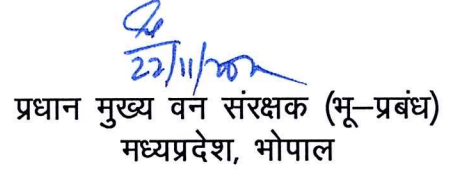 22/11/202
प्रधान मुख्य वन संरक्षक (भू–प्रबंध)
मध्यप्रदेश, भोपाल